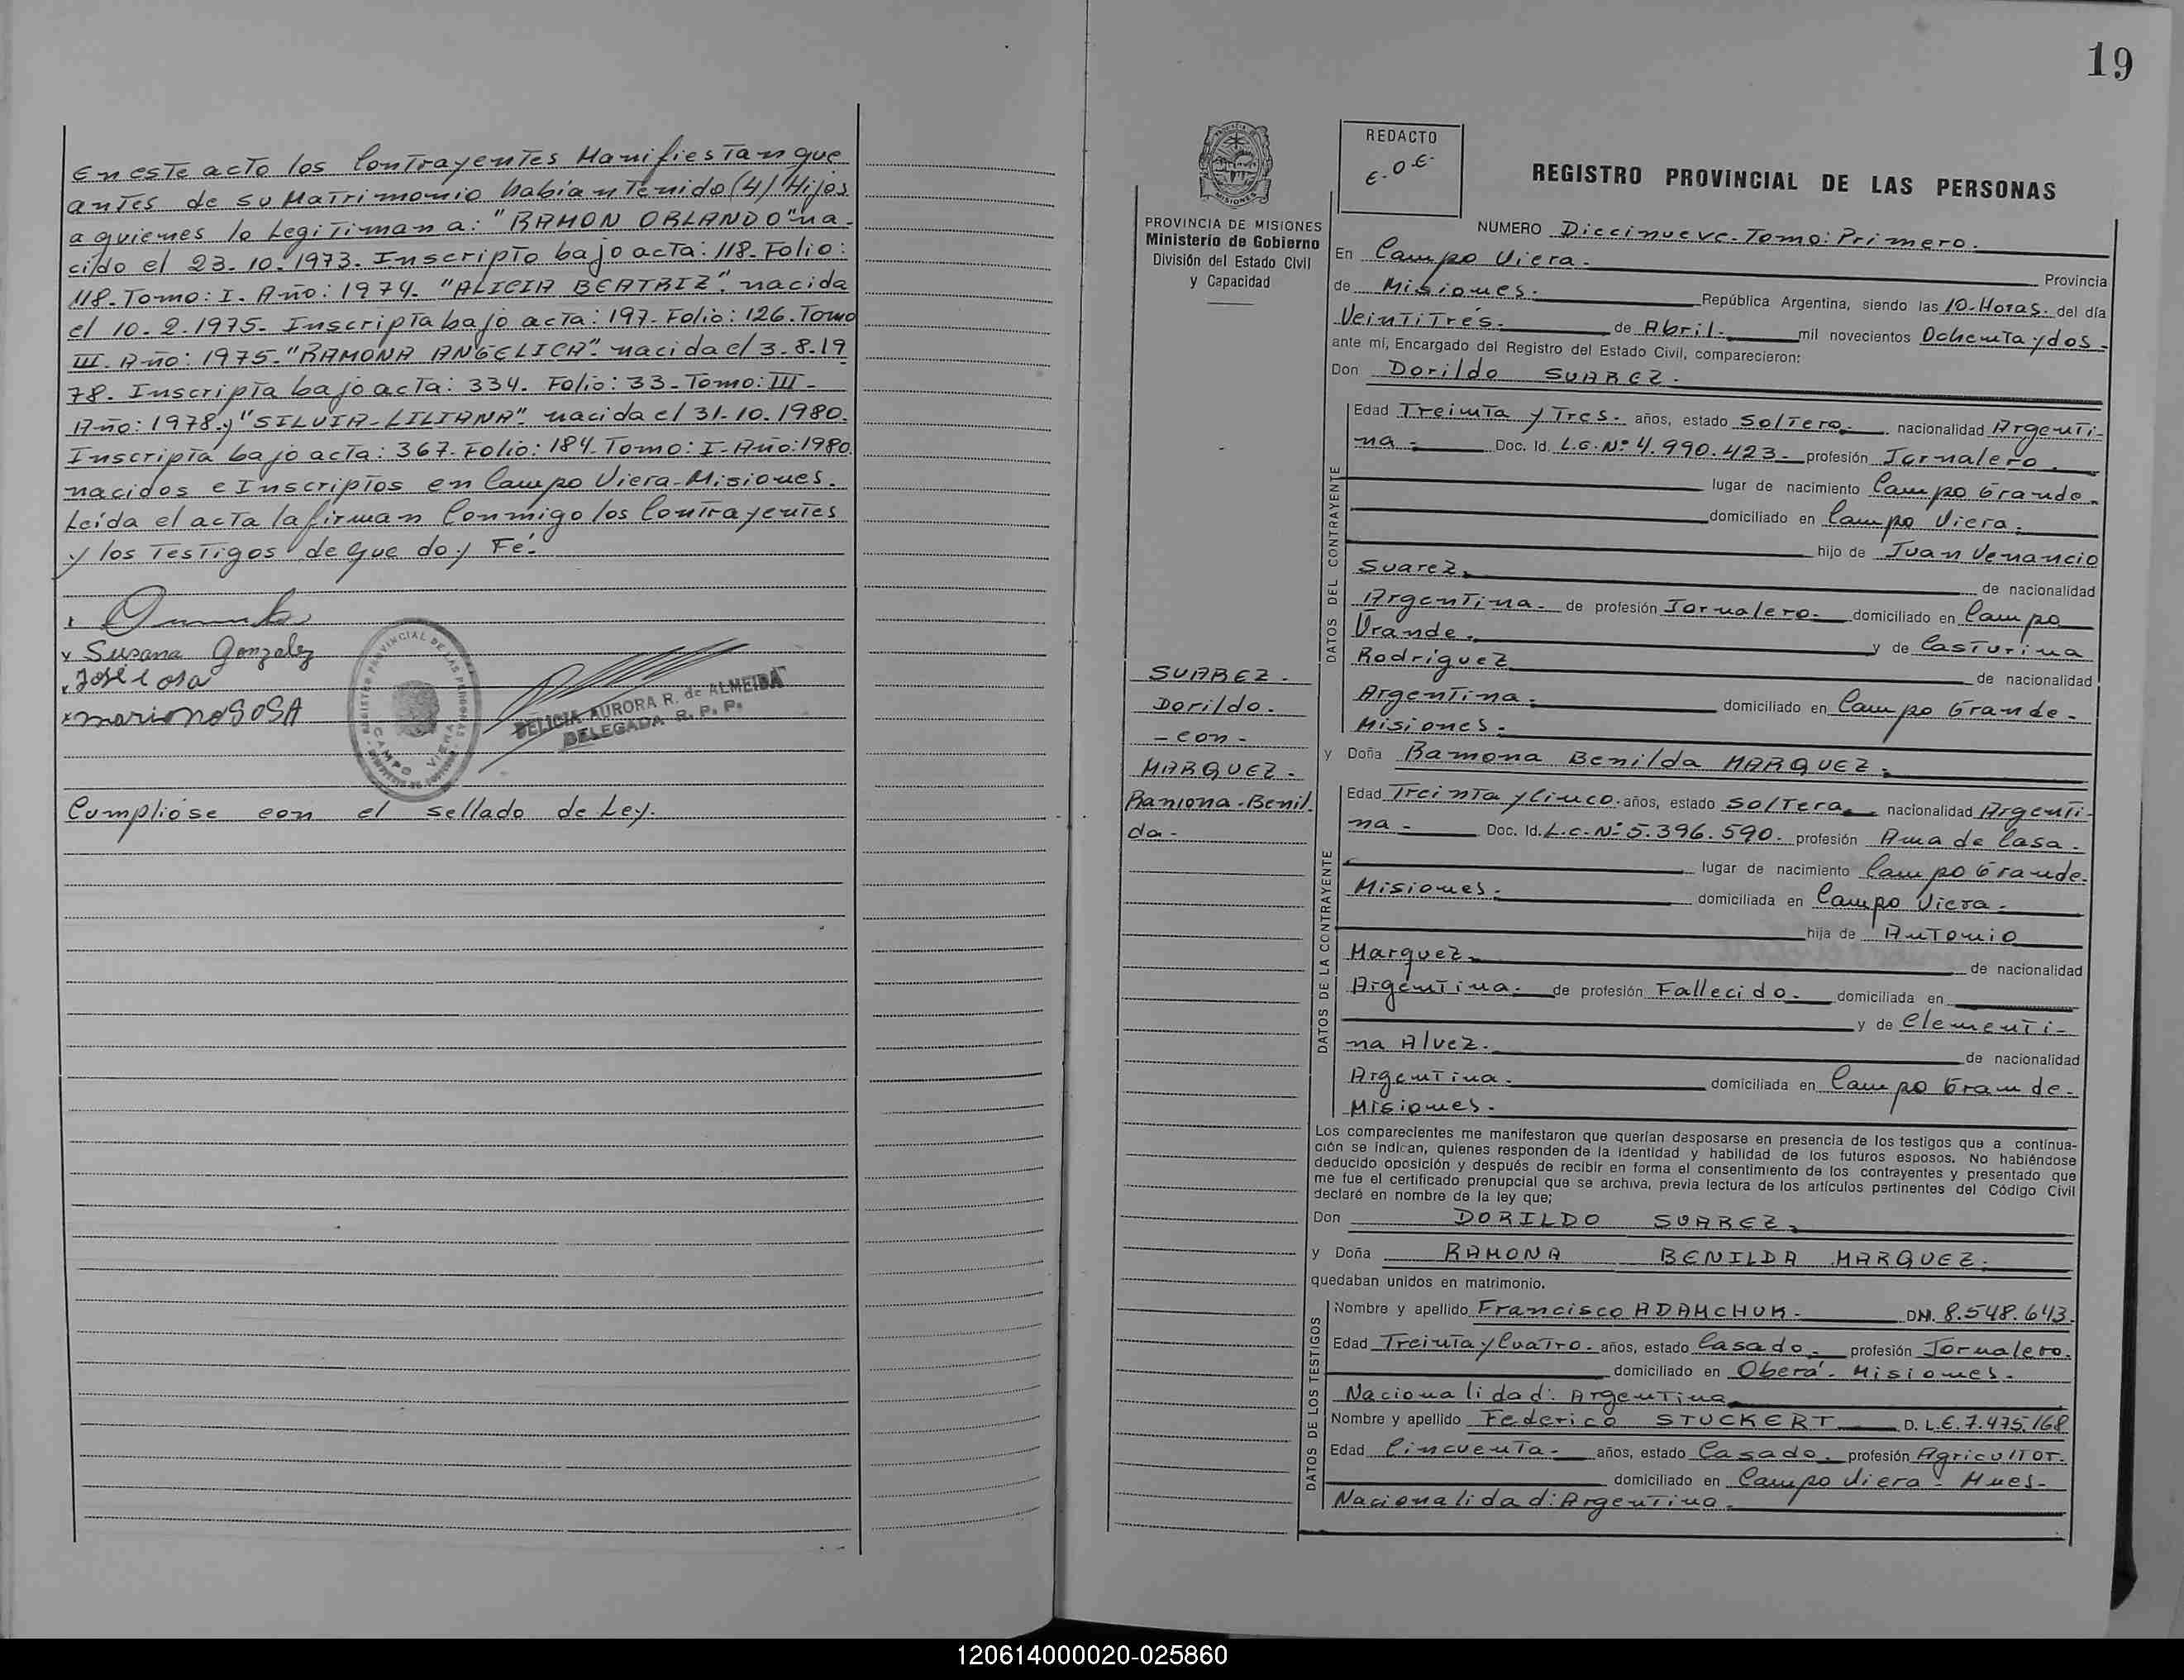 En este acto los Contrayentes Manifiestan que
antes de su Matrimonio habian Tenido (4) Hijos
a quienes lo Legitiman a: "RAMON ORLANDO" na-
cido el 23.10.1973. Inscripto bajo acta: 118. Folio:
118. Tomo: I. Año: 1974. "ALICIA BEATRIZ". nacida
el 10.2.1975. Inscripta bajo acta: 197. Folio: 126. Tomo
III. Año: 1975. "RAMONA ANGELICA". nacida el 3.8.19
78. Inscripta bajo acta: 334. Folio: 33. Tomo: III-
Año: 1978.y "SILVIA-LILIANA". nacida el 31.10.1980.
Inscripta bajo acta: 367. Folio: 184. Tomo: I. Año: 1980.
nacidos e Inscriptos en Campo Viera-Misiones.
Leida el acta la firman Conmigo los Contrayentes
y los Testigos de que doy Fé.
Susana Gonzalez
José Sosa
mariono SOSA
REGISTRO PROVINCIAL DE LAS PERSONAS
CAMPO VIERA
DELICIA AURORA R. de ALMEIDA
DELEGADA R. P. P.
Cumplióse con el sellado de Ley.
19
PROVINCIA DE MISIONES
Ministerio de Gobierno
División del Estado Civil
y Capacidad
REDACTO
E.O.E.
REGISTRO PROVINCIAL DE LAS PERSONAS
NUMERO Diecinueve. Tomo: Primero.
En Campo Viera. Provincia
de Misiones. República Argentina, siendo las 10. Horas. del día
Veintitrés. de Abril. mil novecientos Ochenta y dos-
ante mí, Encargado del Registro del Estado Civil, comparecieron:
Don Dorildo SUAREZ.
DATOS DEL CONTRAYENTE
Edad Treinta y Tres. años, estado Soltero. nacionalidad Argenti-
na. Doc. Id. L.E. Nº 4.990.423. profesión Jornalero.
lugar de nacimiento Campo Grande.
domiciliado en Campo Viera.
hijo de Juan Venancio
Suarez. de nacionalidad
Argentina. de profesión Jornalero. domiciliado en Campo
Grande. y de Casturina
Rodriguez de nacionalidad
Argentina. domiciliado en Campo Grande-
Misiones.
SUAREZ.
Dorildo.
-con-
MARQUEZ.
Ramona-Benil-
da-
y Doña Ramona Benilda MARQUEZ.
DATOS DE LA CONTRAYENTE
Edad Treinta y Cinco. años, estado Soltera. nacionalidad Argenti-
na. Doc. Id. L.C. Nº 5.396.590. profesión Ama de Casa.
lugar de nacimiento Campo Grande-
Misiones. domiciliada en Campo Viera.
hija de Antonio
Marquez. de nacionalidad
Argentina. de profesión Fallecido. domiciliada en
y de Clementi-
na Alvez. de nacionalidad
Argentina. domiciliada en Campo Grande-
Misiones.
Los comparecientes me manifestaron que querían desposarse en presencia de los testigos que a continua-
ción se indican, quienes responden de la identidad y habilidad de los futuros esposos. No habiéndose
deducido oposición y después de recibir en forma el consentimiento de los contrayentes y presentado que
me fue el certificado prenupcial que se archiva, previa lectura de los artículos pertinentes del Código Civil
declaré en nombre de la ley que;
Don DORILDO SUAREZ.
y Doña RAMONA BENILDA MARQUEZ.
quedaban unidos en matrimonio.
DATOS DE LOS TESTIGOS
Nombre y apellido Francisco ADAMCHUK. DNI. 8.548.643.
Edad Treinta y Cuatro. años, estado Casado. profesión Jornalero.
domiciliado en Oberá. Misiones.
Nacionalidad: Argentina
Nombre y apellido Federico STUCKERT D. L.E. 7.475.168
Edad Cincuenta. años, estado Casado. profesión Agricultor.
domiciliado en Campo Viera. Mnes-
Nacionalidad: Argentina.
120614000020-025860